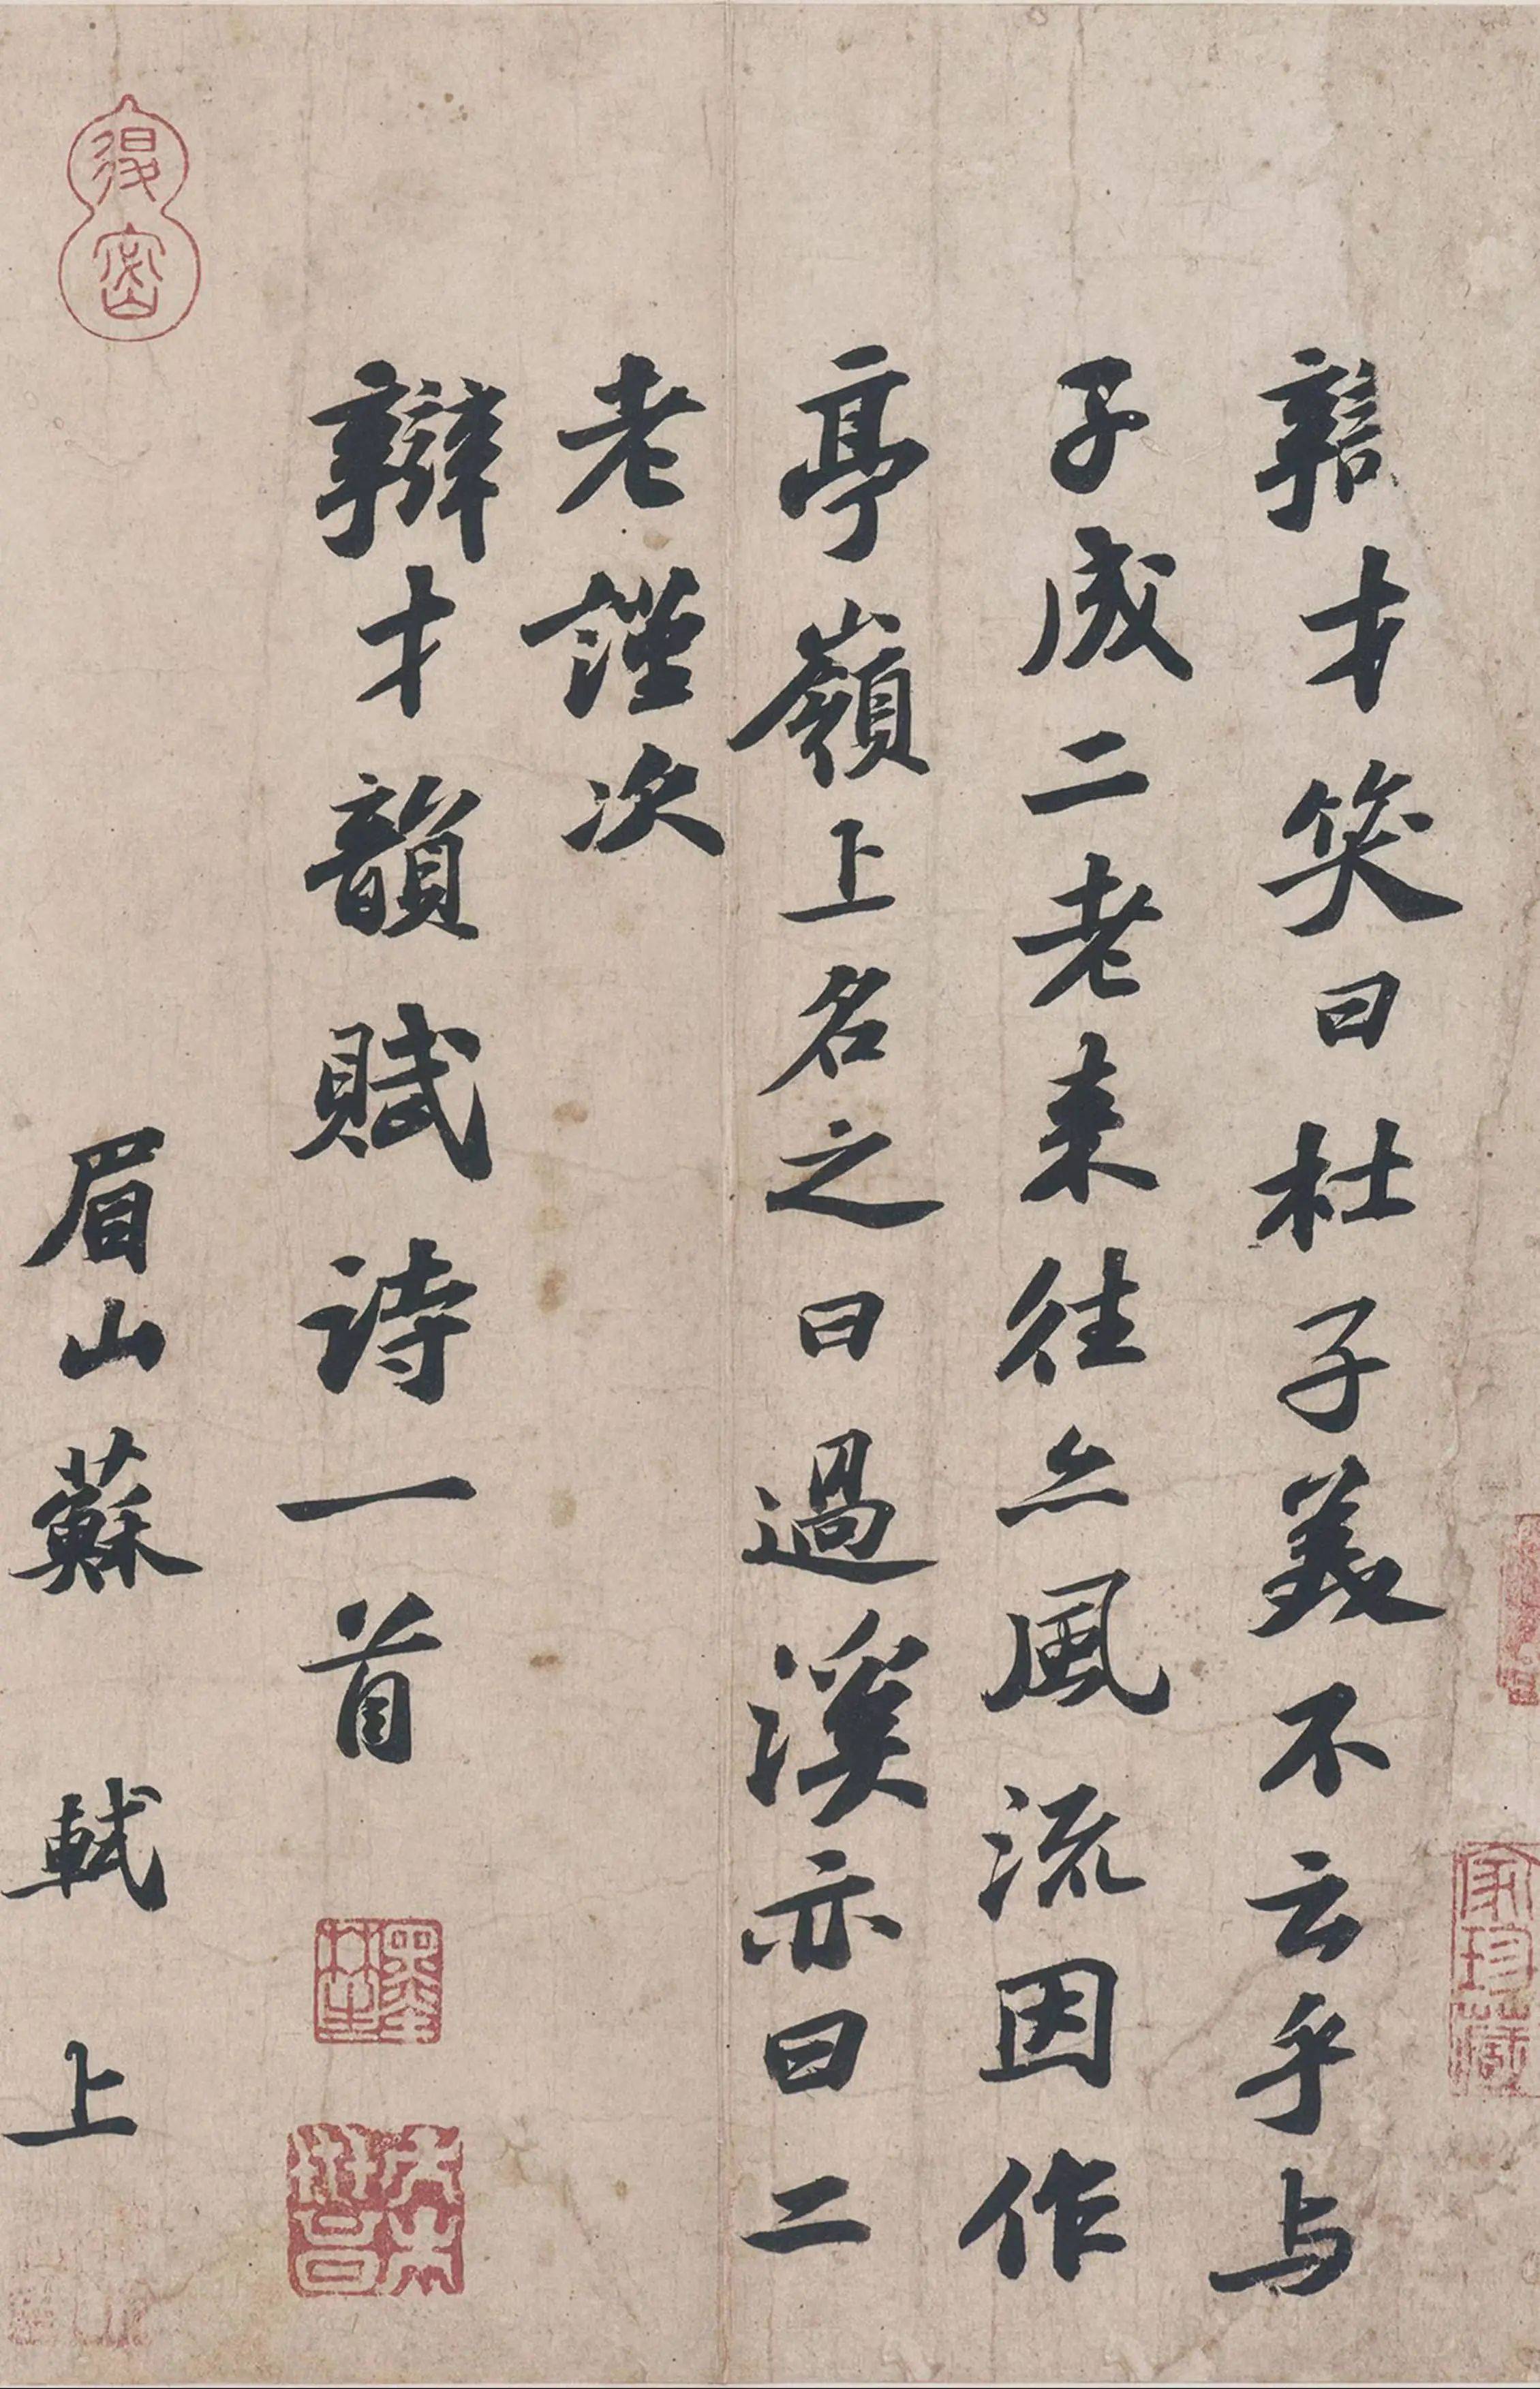 辯才笑曰杜子美不云乎与
子成二老来往亦風流因作
亭嶺上名之曰過溪亦曰二
老謹次
辯才韻賦詩一首
眉山蘇軾上
家珍藏